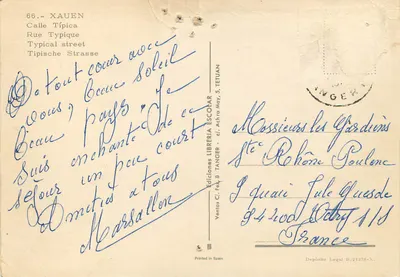 66.- XAUEN
Calle Típica
Rue Typique
Typical street
Tipische Strasse
De tout cœur avec
vous, beau soleil
beau pays. Je
suis enchanté de ce
séjour un peu court
Amitiés a tous
Marsallon
Ediciones LIBRERIA ESCOLAR
TANGER
TETUAN
B
Printed in Spain
TANGER
Messieurs les Gardiens
Sté Rhône Poulenc
9 quai Jule Guesde
94400 Vitry s/s
France
Depósito Legal